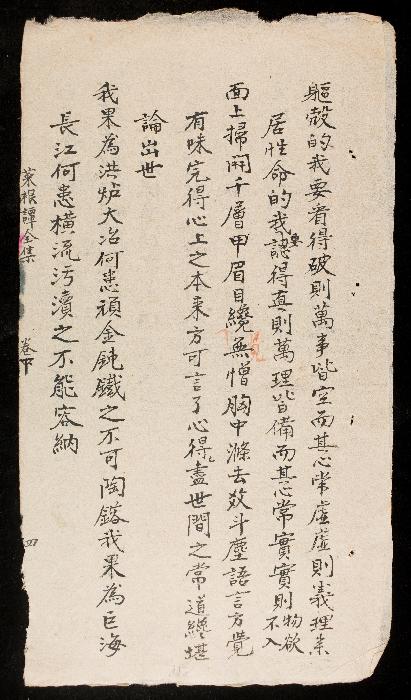 軀殼的我要看得破則萬事皆空而其心常虛虛則義理来
居性命的我要認得真則萬理皆備而其心常實實則物欲不入
面上掃開千層甲眉目纔無憎胸中滌去数斗塵語言方覺
有味完得心上之本来方可言了心得盡世間之常道纔堪
論出世
我果為洪炉大冶何患頑金鈍鐵之不可陶鎔我果為巨海
長江何患橫流污瀆之不能容納
菜根譚全集 卷下 四